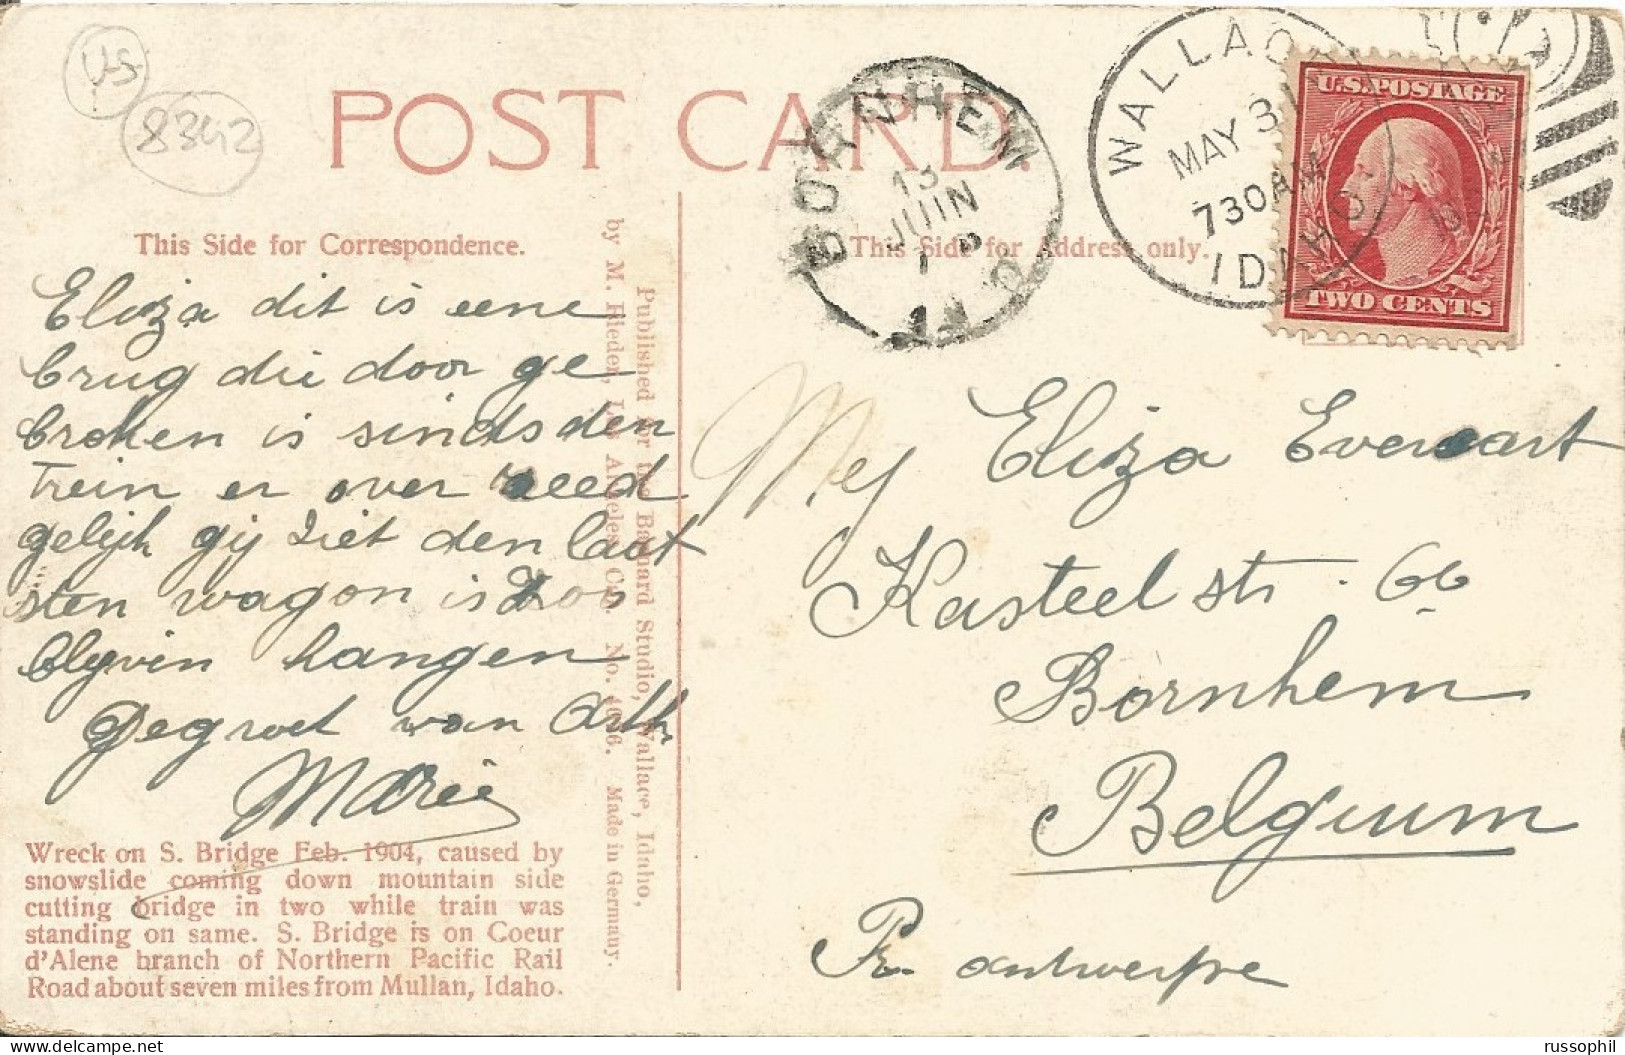 US
8342
POST CARD.
BORNHEM
13
JUIN
WALLACE
MAY 31
730AM
IDAHO.
U.S. POSTAGE
TWO CENTS
This Side for Correspondence.
This Side for Address only.
Eliza dit is eene
brug die door ge
broken is sinds den
Trein er over reed
gelijk gij ziet den laat
sten wagon is zoo
blyven hangen
Gegroet van
Marie
Published for the Barnard Studio, Wallace, Idaho,
by M. Rieder, Los Angeles, Cal. No. Made in Germany.
Wreck on S. Bridge Feb. 1904, caused by
snowslide coming down mountain side
cutting bridge in two while train was
standing on same. S. Bridge is on Coeur
d'Alene branch of Northern Pacific Rail
Road about seven miles from Mullan, Idaho.
Mej Eliza Everaart
Kasteel str. 66
Bornhem
Belgium
Pr. antwerpe
russophil
www.delcampe.net